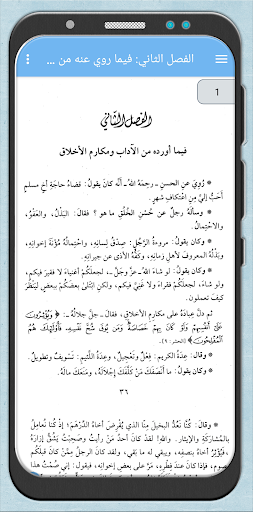 الفصل الثاني: فيما روي عنه من ...
1
الفصل الثاني
فيما أورده من الآداب ومكارم الأخلاق
* رُوِيَ عنِ الحسنِ ـ رحمهُ اللهُ ـ أنَّه كانَ يقولُ: قضاءُ حاجةِ أخٍ مسلمٍ
أحبُّ إليَّ من اعتكافِ شهرٍ.
* وسألهُ رجلٌ عن حُسْنِ الخُلُقِ ما هو؟ فقالَ: البَذْلُ، والعَفْوُ،
والاحتِمالُ.
* وكان يقولُ: مروءةُ الرَّجُلِ: صِدقُ لِسانِهِ، واحتِمالُهُ مؤونَةَ إخوانِهِ،
وبَذْلُهُ المعروفَ لأهلِ زمانِهِ، وكَفُّهُ الأذى عن جيرانِهِ.
* وكان يقولُ: لو شاءَ اللهُ ـ عزَّ وجلَّ ـ، لجعلَكُمْ أغنياءَ لا فقيرَ فيكم،
ولو شاءَ، لجعلَكُمْ فقراءَ ولا غَنِيَّ فيكم، ولكنِ ابتَلى بعضَكُمْ ببعضٍ لينظُرَ
كيفَ تعملونَ.
ثم دلَّ عبادَهُ على مكارمِ الأخلاقِ، فقالَ ـ جلَّ جلالُهُ ـ: ﴿وَيُؤْثِرُونَ
عَلَىٰ أَنفُسِهِمْ وَلَوْ كَانَ بِهِمْ خَصَاصَةٌ وَمَن يُوقَ شُحَّ نَفْسِهِ فَأُولَٰئِكَ هُمُ
الْمُفْلِحُونَ﴾ [الحشر: ٩].
* وقالَ: عِدَةُ الكريمِ: فِعْلٌ وتَعْجيلٌ، وعِدَةُ اللَّئيمِ: تَسْويفٌ وتطويلٌ.
* وكان يقولُ: ما أَنْصَفَكَ مَنْ كَلَّفَكَ إجلالَهُ، ومَنَعَكَ مالَهُ.
٣٦
* وكان يقولُ: كُنَّا نَعُدُّ البخيلَ مِنَّا الذي يُقْرِضُ أخاهُ الدِّرْهَمَ؛ إذْ كُنَّا نُعامِلُ
بالمُشارَكَةِ والإيثارِ. واللهِ! لقد كانَ أحدُ مَنْ رأيتُ وصَحِبْتُ يشُقُّ إزارَهُ
فيُؤْثِرُ أخاهُ بنصفِهِ، ويبقى له ما بَقِيَ، ولقد كانَ الرجلُ مِمَّنْ كانَ قبلَكُم
يصومُ، فإذا كانَ عندَ فِطْرِهِ، مرَّ على بعضِ إخوانِهِ، فيقولُ: إني صمتُ هذا